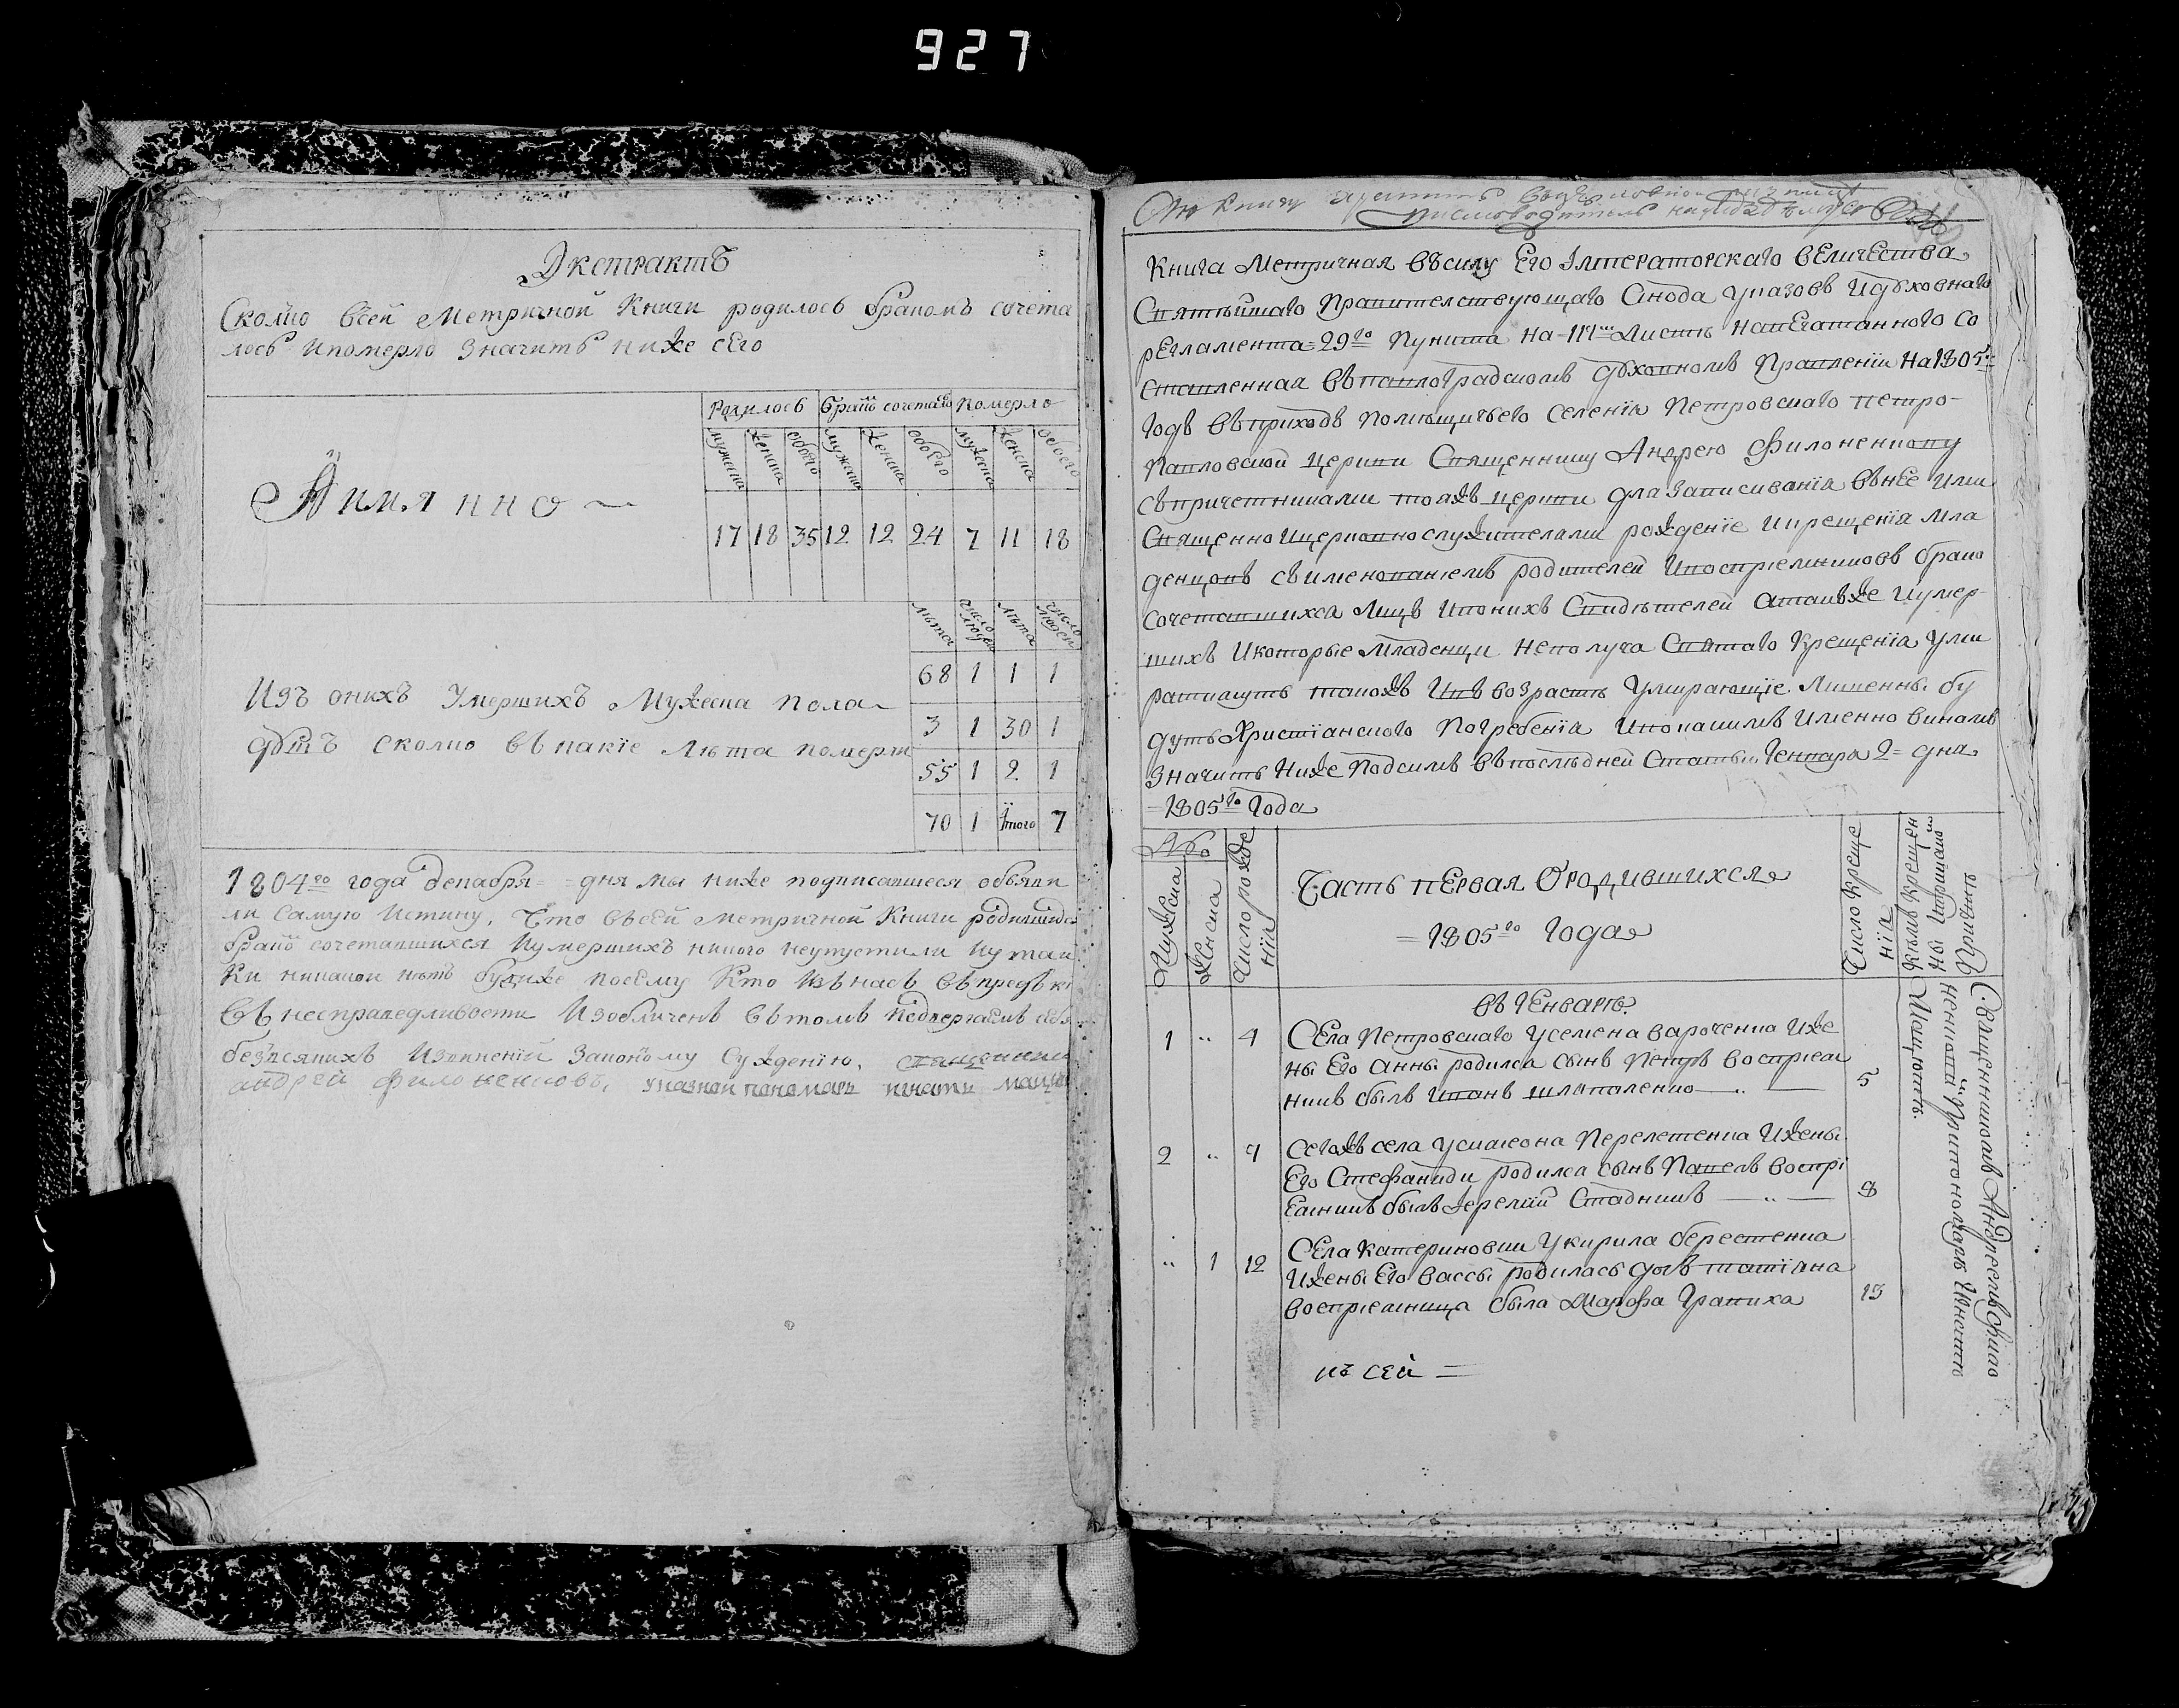 927
Экстрактъ
Сколко в сей Метричной Книги родилось бракомъ сочета
лось и померло значитъ ниже сего
Родилось Бракō сочетало Померло
мужеска женска обоего мужеска женска обоего мужеска женска обоего
А имянно
17 18 35 12 12 24 7 11 18
Лѣта число людей Лѣта число людей
68 1 1 1
Изъ оныхъ Умершихъ Мужеска пола
3 1 30 1
сколко в какие лѣта померли
55 1 2 1
70 1 итого 7
1804го года декабря = = дня мы ниже подписавшиеся обьяви
ли самую истину, что в сей метричной Книги родившихс
бракō сочетавшихся и умершихъ никого неупустили и утай
ки никакой нѣтъ будиже посему кто изъ насъ впредъ
въ несправедливости изобличенъ въ томъ подвергаемъ себя
без всякихъ извинений законому суждению. священник
андрей филоненковъ, указной пономарь игнатъ
Сию книгу
писмоводитель
Книга Метричная въ силу Его Императорскаго величества
Святѣйшаго Правителствующаго Синода указовъ и духовнаго
регламента 29го пункта на 111м листѣ напечатанного со
ставленная в павлоградскомъ духовномъ правлении на 1805й
годъ в приходъ помѣщичьего селения Петровскаго петро-
павловской церкви Священнику Андрею Филоненкову
съ причетниками тояжъ церкви для записивания в нее ими
Священно и церковнослужителами рождение и крещения мла
денцовъ съ именованиемъ родителей и восприемниковъ брако
сочетавшихся лицъ и по нихъ свидѣтелей атакъже и умер-
шихъ и которые младенци неполуча святаго крещения уми
рать имутъ такожъ и в возрастѣ умирающие лишенны бу
дутъ христианского погребения и по какимъ именно винамъ
значитъ ниже подсимъ в послѣдней статьи. Генваря 2= дня
= 1805го года
№
Мужеска Женска число рожде ния
Часть первая о родившихся
= 1805го года
Число креще ния
Кѣмъ крещен ны
и причитъ
въ генварѣ.
1 " 4 Села Петровскаго у семена вароченка и же
ны его анны родился сынъ петръ восприем
никъ былъ иванъ шлапаленко 5
2 " 4 Сегожъ села у симеона перелетенка и жены
его стефаниди родился сынъ павелъ воспри
емникъ былъ Иеремий Стадникъ 8
" 1 12 Села катериновки у кирила берестенка
и жены его вассы родилась дочъ татиана
восприемница была марфа граниха 13
Священникомъ Андреемъ фило
ненковымъ при пономаръ игнатѣ
къ сей =